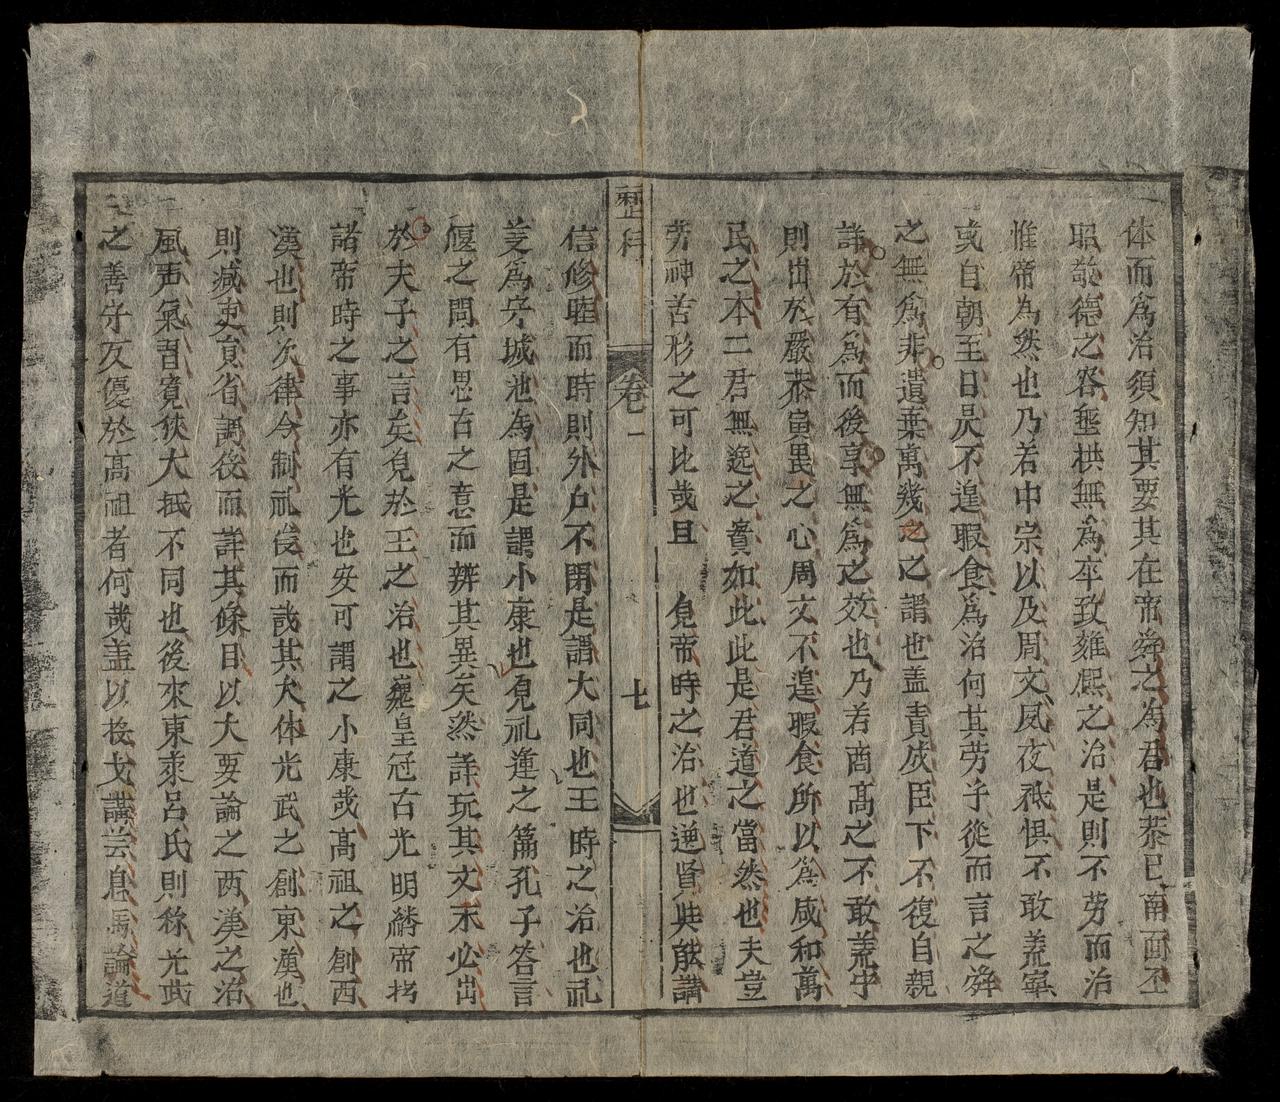 体而為治須知其要其在帝舜之為君也恭已南面丕
昭敬德之容垂拱無為卒致雍熙之治是則不劳而治
惟帝為然也乃若中宗以及周文夙夜祇惧不敢荒寧
或自朝至日昃不遑暇食為治何其劳乎從而言之舜
之無為非遺棄萬幾之之謂也盖責成臣下不復自親
詳於有為而後享無為之效也乃若商髙之不敢荒宁
則出於嚴恭寅畏之心周文不遑暇食所以為咸和萬
民之本二君無逸之實如此此是君道之當然也夫豈
劳神苦形之可比哉且 皃帝時之治也逆賢與能講
歷科 卷一 七
信修睦而時則外户不閉是謂大同也王時之治也礼
义為守城池為固是謂小康也皃礼運之篇孔子答言
偃之問有思古之意而辨其異矣然詳玩其文末必出
於夫子之言矣皃於王之治也巍皇冠古光明繙帝拷
諸帝時之事亦有光也安可謂之小康哉髙祖之創西
漢也則次律令制礼仪而哉其大体光武之創東漢也
則臧吏貟省調役而詳其條目以大要論之两漢之治
風声氣習寬狹大抵不同也後來東萊吕氏則称光武
之善守反優於髙祖者何哉盖以投戈講芸息馬論道